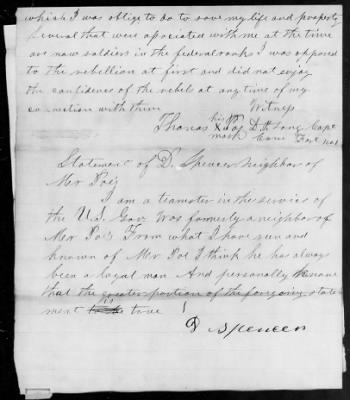 which I was oblige to do to save my life and property
Several that were asociated with me at the time
are now soldiers in the federal ranks I was opposed
to the rebellion at first and did not enjoy
the confidence of the rebels at any time of my
connection with them Witness
Thomas his X mark Poe D. H. Long Capt
Statement of D. Spencer neighbor of
Mr Poe's
I am a teamster in the service of
the U.S. Gov. Was formerly a neighbor of
Mr Poe's From what I have seen and
known of Mr Poe I think he has always
been a loyal man And personally know
that the greater portion of the forgoing state
ment is true !
D Spencer